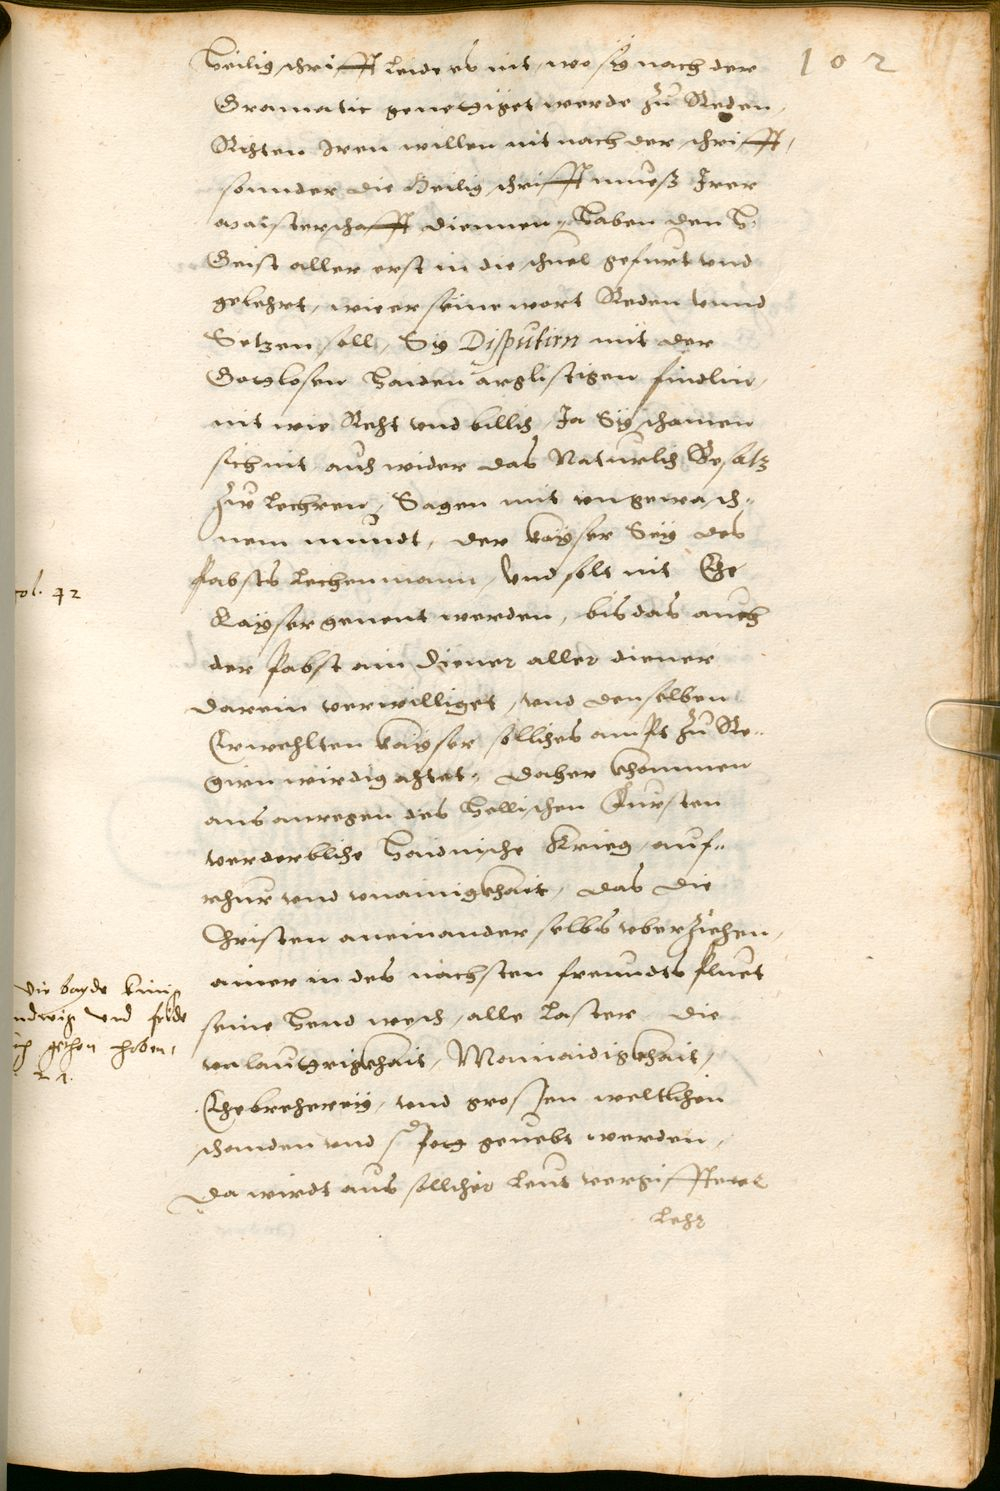 102
Heilig schrifft leide es nit, wo sy nach der
Gramatic genetziget werde zu Reden,
Richten Iren willen nit nach der schrifft,
sonnder die Heilig schrifft muess Irer
maisterschafft diennen, Haben den H.
Geist aller erst in die schuel gefurt vnd
gelehrt, wie er seine wort Reden vnnd
Setzen soll, Sy Disputirn mit der
Gotlosen Haiden arglistigen findlin,
nit wie Recht vnd billich, Ja Sy schamen
sich nit auch wider das Naturlich Gesatz
zu lechren, Sagen mit vngewasch-
nem mundt, der kayser Sey des
Pabsts lechenmann, vnd solt nit Ehe
Kayser genent werden, bis das auch
der Pabst ain Diener aller diener
darein verwilliget, vnd denselben
Erwehlten kayser, solliches ampts zu Re-
girn wirdig achtet. Daher khommen
aus anregen des Hellischen Fursten
verderbliche Haidnische Krieg, auf-
rhur vnd vnainigkhait, das die
Christen aneinander selbs vberziehen,
ainer in des nachsten freundts bluet
seine Hend wesch, alle laster die
vnlauttrigkhait, Mainaidigkhait,
Ehebrecherey, vnd grossen weltlichen
schanden vnd spot geuebt werden,
Da wirdt aus sollicher leut vergiffter
Lehr
fol. 42
Die bayde kunig
Ludwig vnd fride
gethon haben,